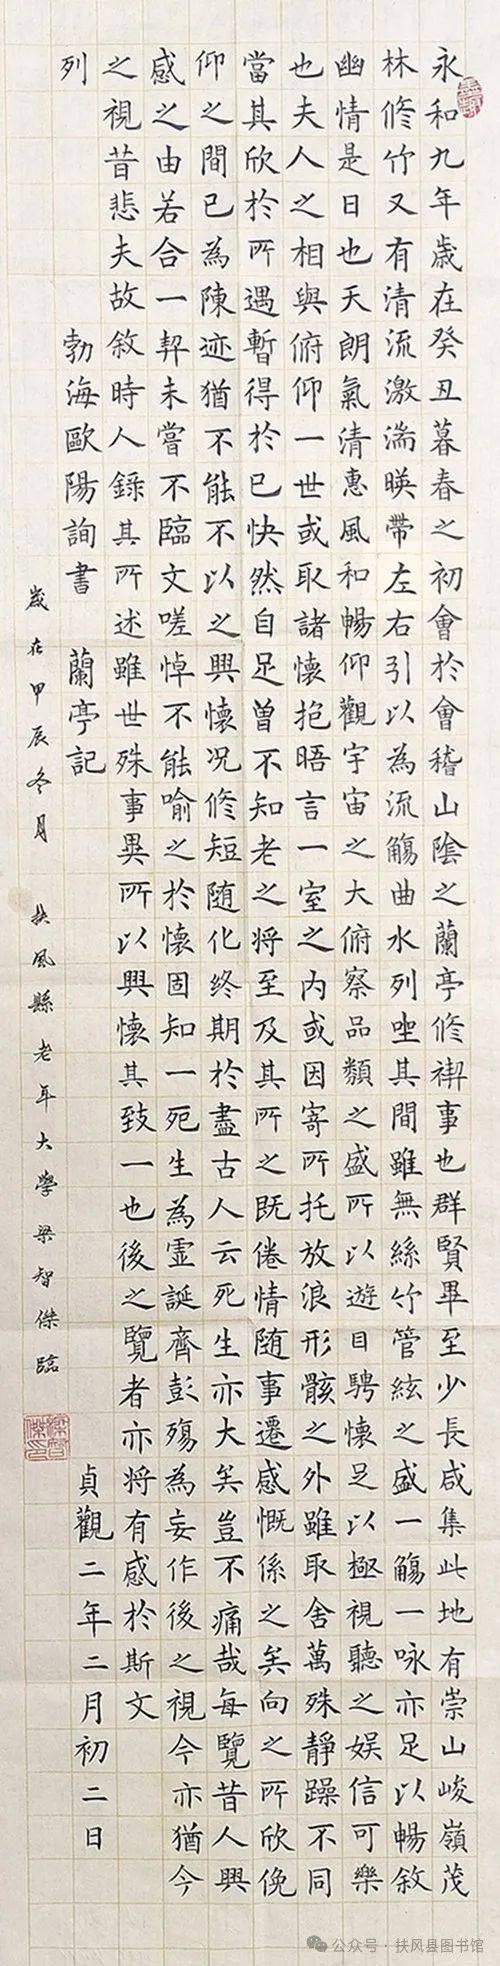 永和九年歲在癸丑暮春之初會於會稽山陰之蘭亭修禊事也群賢畢至少長咸集此地有崇山峻嶺茂
林修竹又有清流激湍暎帶左右引以為流觴曲水列坐其間雖無絲竹管絃之盛一觴一咏亦足以暢敘
幽情是日也天朗氣清惠風和暢仰觀宇宙之大俯察品類之盛所以遊目騁懷足以極視聽之娛信可樂
也夫人之相與俯仰一世或取諸懷抱晤言一室之內或因寄所托放浪形骸之外雖取舍萬殊靜躁不同
當其欣於所遇暫得於己快然自足曾不知老之將至及其所之既倦情隨事遷感慨係之矣向之所欣俛
仰之間已為陳迹猶不能不以之興懷況修短隨化終期於盡古人云死生亦大矣豈不痛哉每覽昔人興
感之由若合一契未嘗不臨文嗟悼不能喻之於懷固知一死生為虛誕齊彭殤為妄作後之視今亦猶今
之視昔悲夫故敘時人錄其所述雖世殊事異所以興懷其致一也後之覽者亦將有感於斯文
列 勃海歐陽詢書 蘭亭記 貞觀二年二月初二日
歲在甲辰冬月 扶風縣老年大學梁智傑臨
公众号·扶风县图书馆